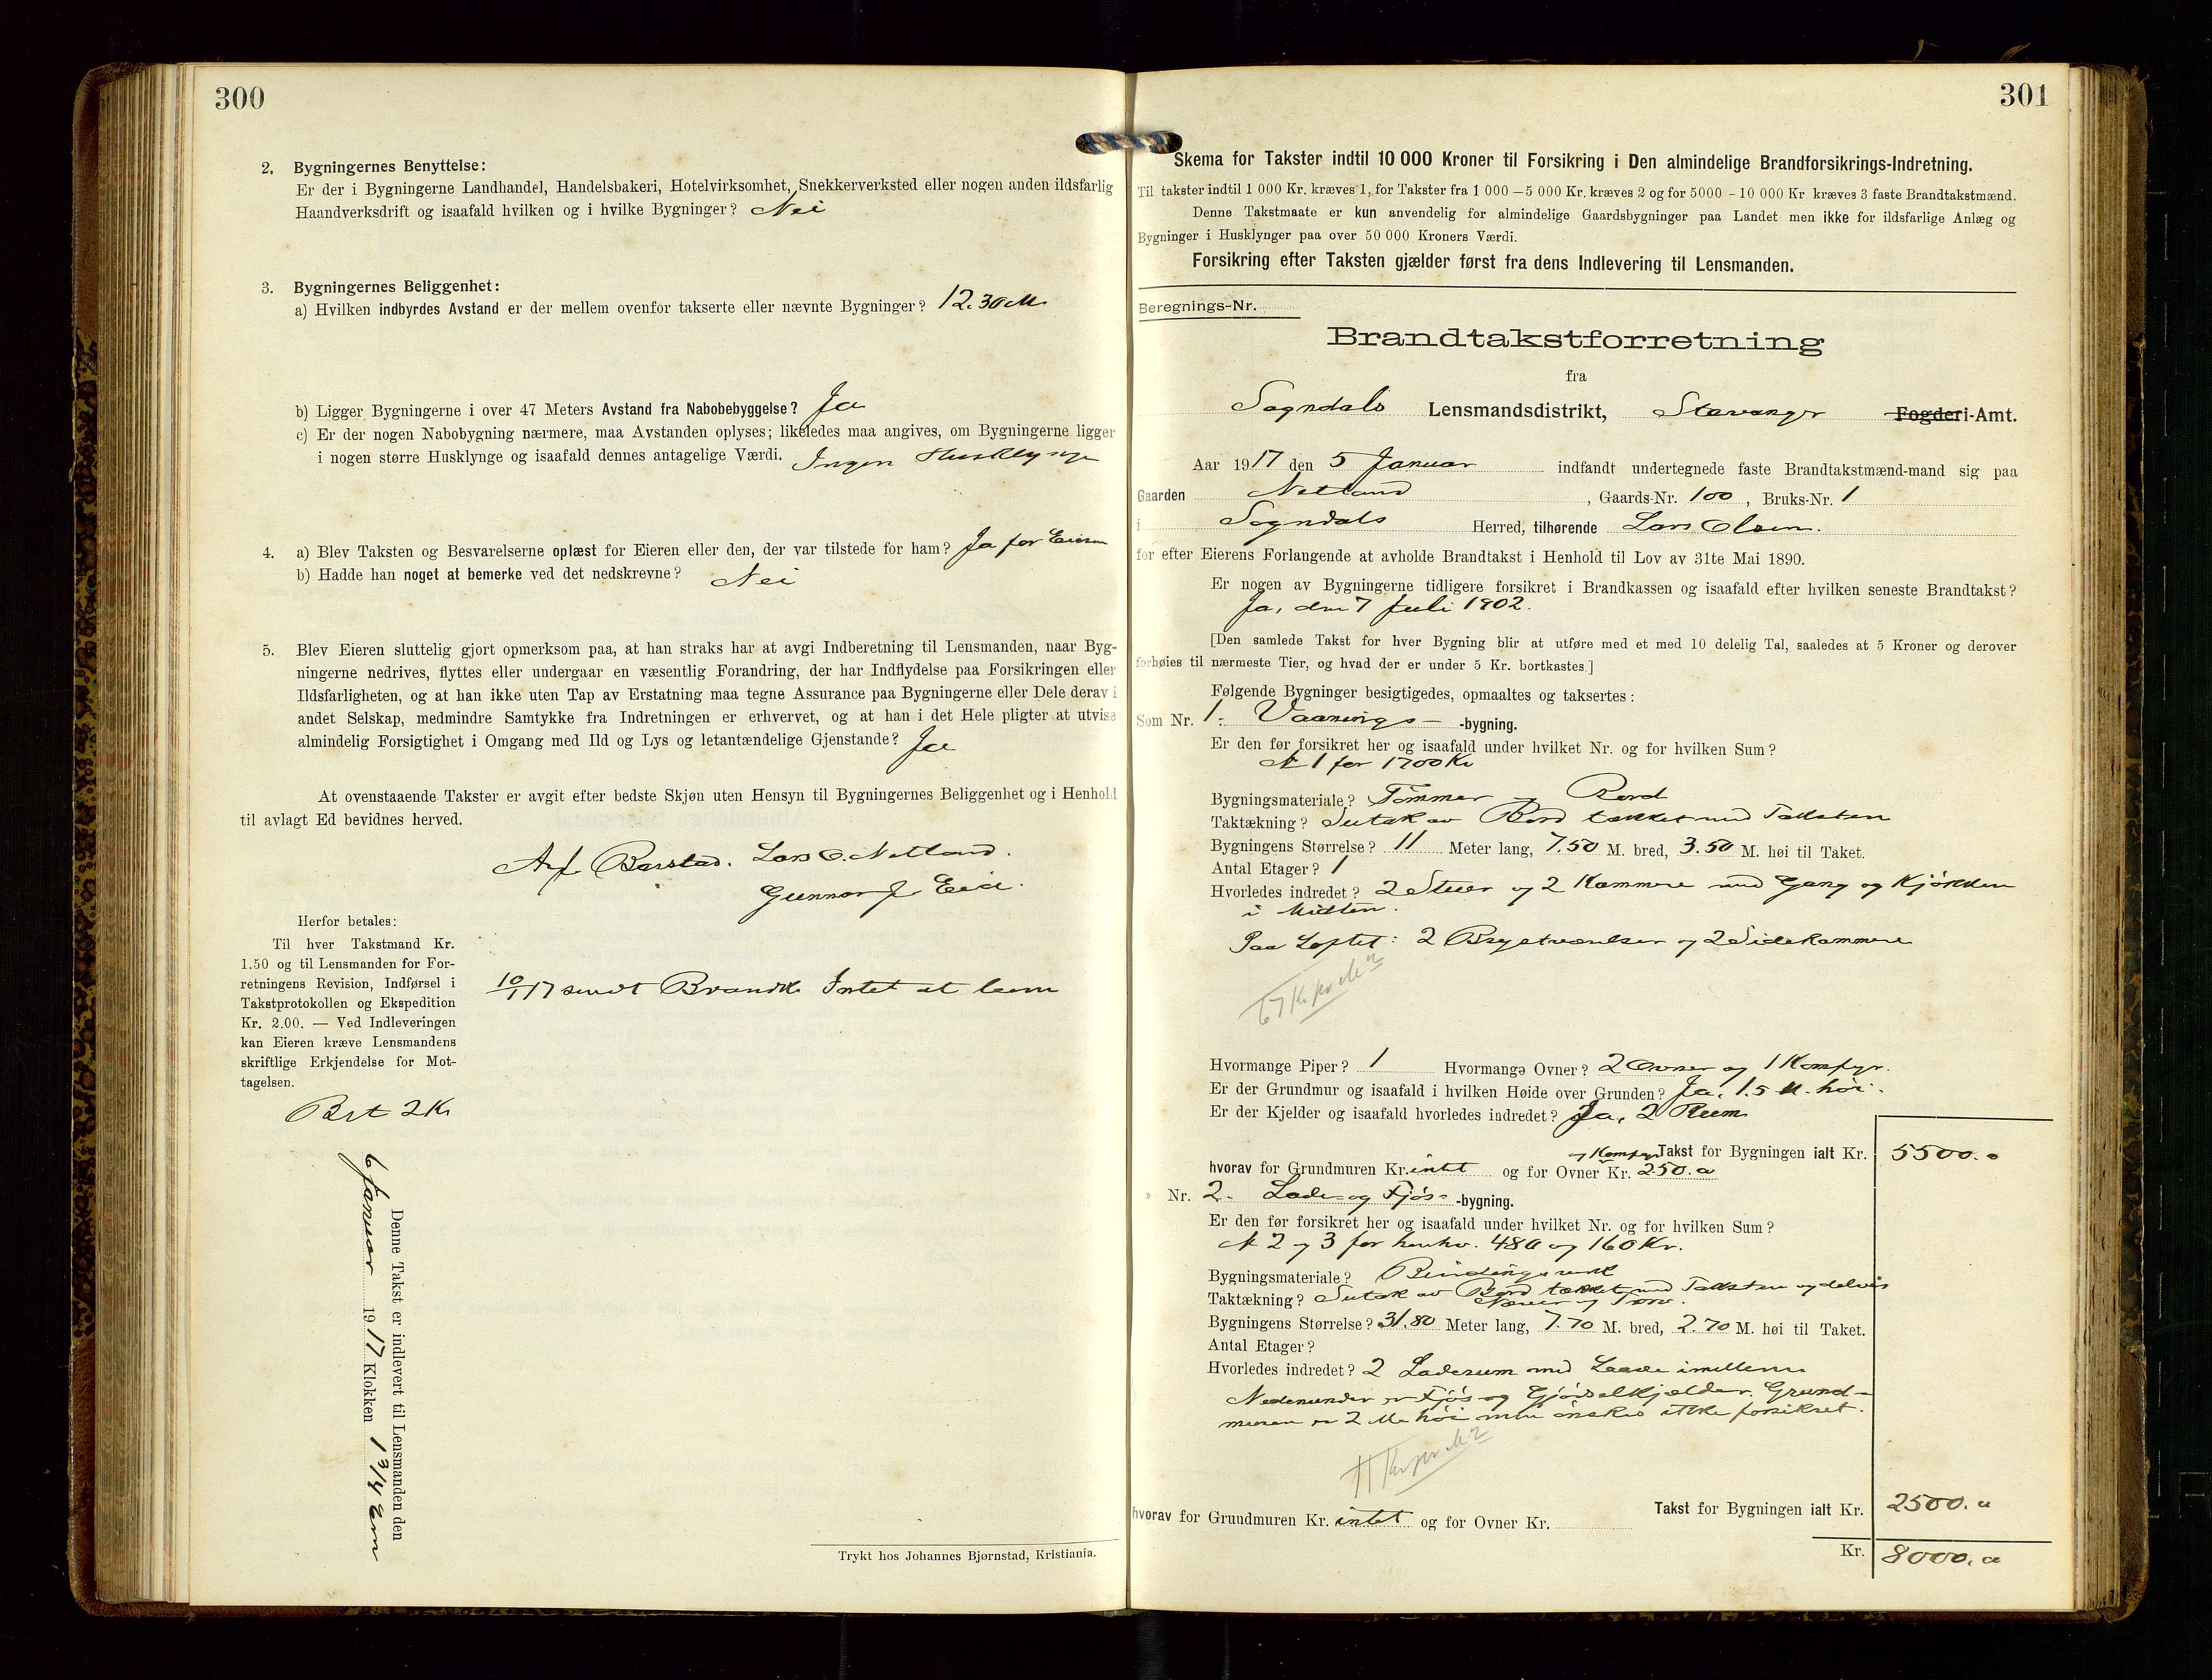 300
2. Bygningernes Benyttelse:
Er der i Bygningerne Landhandel, Handelsbakeri, Hotelvirksomhet, Snekkerverksted eller nogen anden ildsfarlig
Haandverksdrift og isaafald hvilken og i hvilke Bygninger? Nei
3. Bygningernes Beliggenhet:
a) Hvilken indbyrdes Avstand er der mellem ovenfor takserte eller nævnte Bygninger? 12.30 M.
b) Ligger Bygningerne i over 47 Meters Avstand fra Nabobebyggelse? Ja
c) Er der nogen Nabobygning nærmere, maa Avstanden oplyses; likeledes maa angives, om Bygningerne ligger
i nogen større Husklynge og isaafald dennes antagelige Værdi. Ingen Husklynge
4. a) Blev Taksten og Besvarelserne oplæst for Eieren eller den, der var tilstede for ham? Ja for Eieren
b) Hadde han noget at bemerke ved det nedskrevne? Nei
5. Blev Eieren sluttelig gjort opmerksom paa, at han straks har at avgi Indberetning til Lensmanden, naar Byg-
ningerne nedrives, flyttes eller undergaar en væsentlig Forandring, der har Indflydelse paa Forsikringen eller
Ildsfarligheten, og at han ikke uten Tap av Erstatning maa tegne Assurance paa Bygningerne eller Dele derav i
andet Selskap, medmindre Samtykke fra Indretningen er erhvervet, og at han i det Hele pligter at utvise
almindelig Forsigtighet i Omgang med Ild og Lys og letantændelige Gjenstande? Ja
At ovenstaaende Takster er avgit efter bedste Skjøn uten Hensyn til Bygningernes Beliggenhet og i Henhold
til avlagt Ed bevidnes herved.
Barstad. Lars O. Netland.
Gunnar J Eeie.
Herfor betales:
Til hver Takstmand Kr.
1.50 og til Lensmanden for For-
retningens Revision, Indførsel i
Takstprotokollen og Ekspedition
Kr. 2.00. — Ved Indleveringen
kan Eieren kræve Lensmandens
skriftlige Erkjendelse for Mot-
tagelsen.
10/1 17 sendt Brandk. Intet at
Bet 2 Kr
Denne Takst er indlevert til Lensmanden den
6 Januar 1917 Klokken 1 3/4 Em
Trykt hos Johannes Bjørnstad, Kristiania.
301
Skema for Takster indtil 10 000 Kroner til Forsikring i Den almindelige Brandforsikrings-Indretning.
Til takster indtil 1 000 Kr. kræves 1, for Takster fra 1 000 – 5 000 Kr. kræves 2 og for 5000 - 10 000 Kr kræves 3 faste Brandtakstmænd.
Denne Takstmaate er kun anvendelig for almindelige Gaardsbygninger paa Landet men ikke for ildsfarlige Anlæg og
Bygninger i Husklynger paa over 50 000 Kroners Værdi.
Forsikring efter Taksten gjælder først fra dens Indlevering til Lensmanden.
Beregnings-Nr.
Brandtakstforretning
fra
Sogndals Lensmandsdistrikt, Stavanger Fogderi-Amt.
Aar 1917 den 5 Januar indfandt undertegnede faste Brandtakstmænd-mand sig paa
Gaarden Netland, Gaards-Nr. 100, Bruks-Nr. 1
i Sogndals Herred, tilhørende Lars Olsen.
for efter Eierens Forlangende at avholde Brandtakst i Henhold til Lov av 31te Mai 1890.
Er nogen av Bygningerne tidligere forsikret i Brandkassen og isaafald efter hvilken seneste Brandtakst?
Ja, den 7 Juli 1902.
[Den samlede Takst for hver Bygning blir at utføre med et med 10 delelig Tal, saaledes at 5 Kroner og derover
forhøies til nærmeste Tier, og hvad der er under 5 Kr. bortkastes.]
Følgende Bygninger besigtigedes, opmaaltes og taksertes:
Som Nr. 1. Vaanings- -bygning.
Er den før forsikret her og isaafald under hvilket Nr. og for hvilken Sum?
N 1 for 1700 Kr
Bygningsmateriale? Tømmer og Bord
Taktækning? Sutak av Bord tækket med Taksten
Bygningens Størrelse? 11 Meter lang, 7.50 M. bred, 3.50 M. høi til Taket.
Antal Etager? 1
Hvorledes indredet? 2 Stuer og 2 Kammere med Gang og Kjøkken
i Midten.
Paa Loftet: 2 Brystværelser og 2 Sidekammere
67 Kr pr M2
Hvormange Piper? 1 Hvormange Ovner? 2 Ovner og 1 Komfyr.
Er der Grundmur og isaafald i hvilken Høide over Grunden? Ja, 1.5 M. høi.
Er der Kjelder og isaafald hvorledes indredet? Ja, 2 Rum
Takst for Bygningen ialt Kr. 5500.
hvorav for Grundmuren Kr. intet og for Ovner og Komfyr Kr. 250.
» Nr. 2. Lade- og Fjøs- -bygning.
Er den før forsikret her og isaafald under hvilket Nr. og for hvilken Sum?
N 2 og 3 for henhv. 480 og 160 Kr.
Bygningsmateriale? Bindingsverk
Taktækning? Sutak av Bord tækket med Taksten og delvis
Næver og Torv.
Bygningens Størrelse? 31.80 Meter lang, 7.70 M. bred, 2.70 M. høi til Taket.
Antal Etager?
Hvorledes indredet? 2 Laderum med Laave imellem
Nedenunder er Fjøs og Gjødselkjælder. Grund-
muren er 2 M. høi men ønskes ikke forsikret.
11 Kr pr M2
Takst for Bygningen ialt Kr. 2500.
hvorav for Grundmuren Kr. intet og for Ovner Kr.
Kr. 8000.